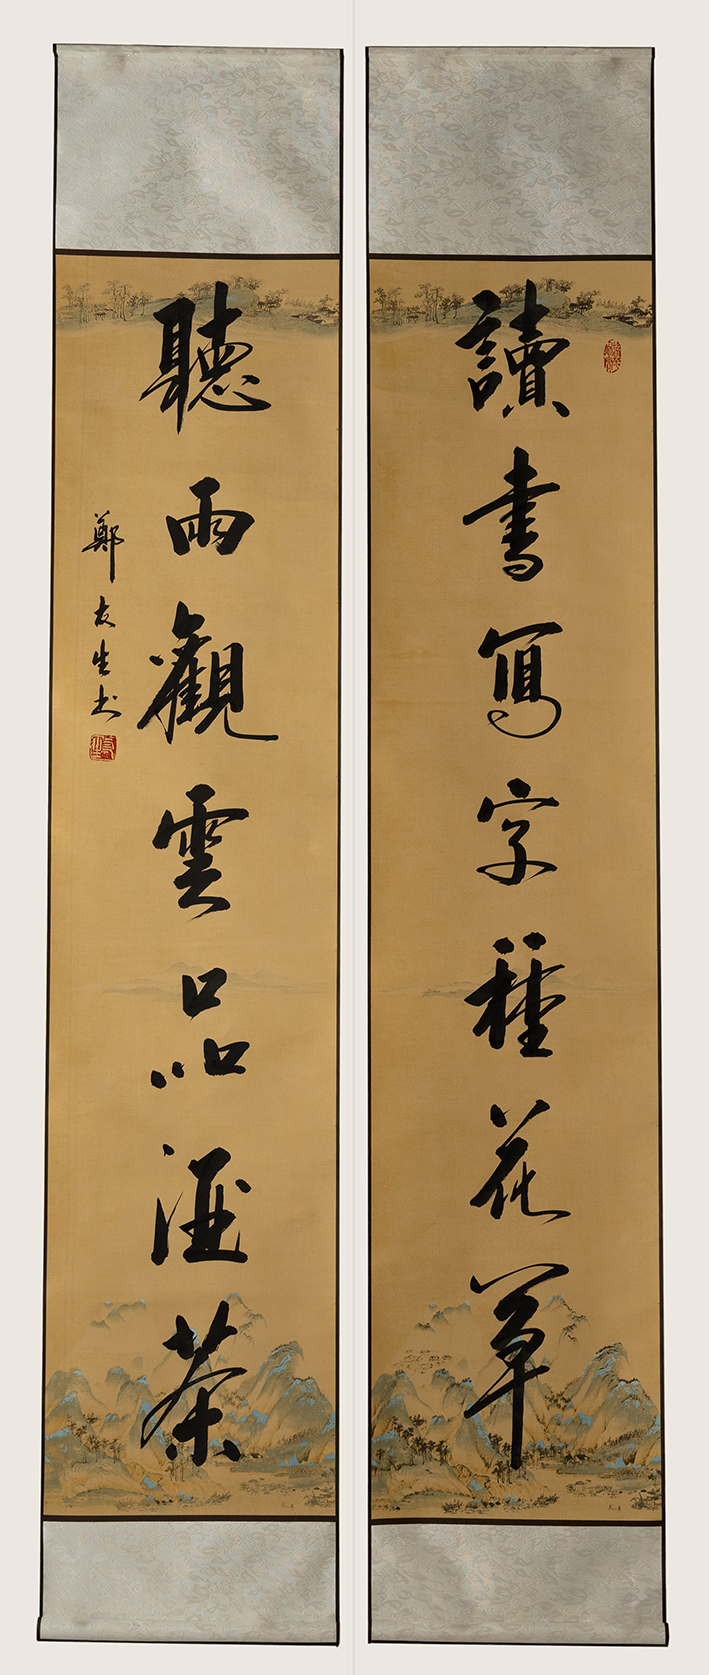 讀書寫字種花草
聽雨觀雲品酒茶
鄭友生书